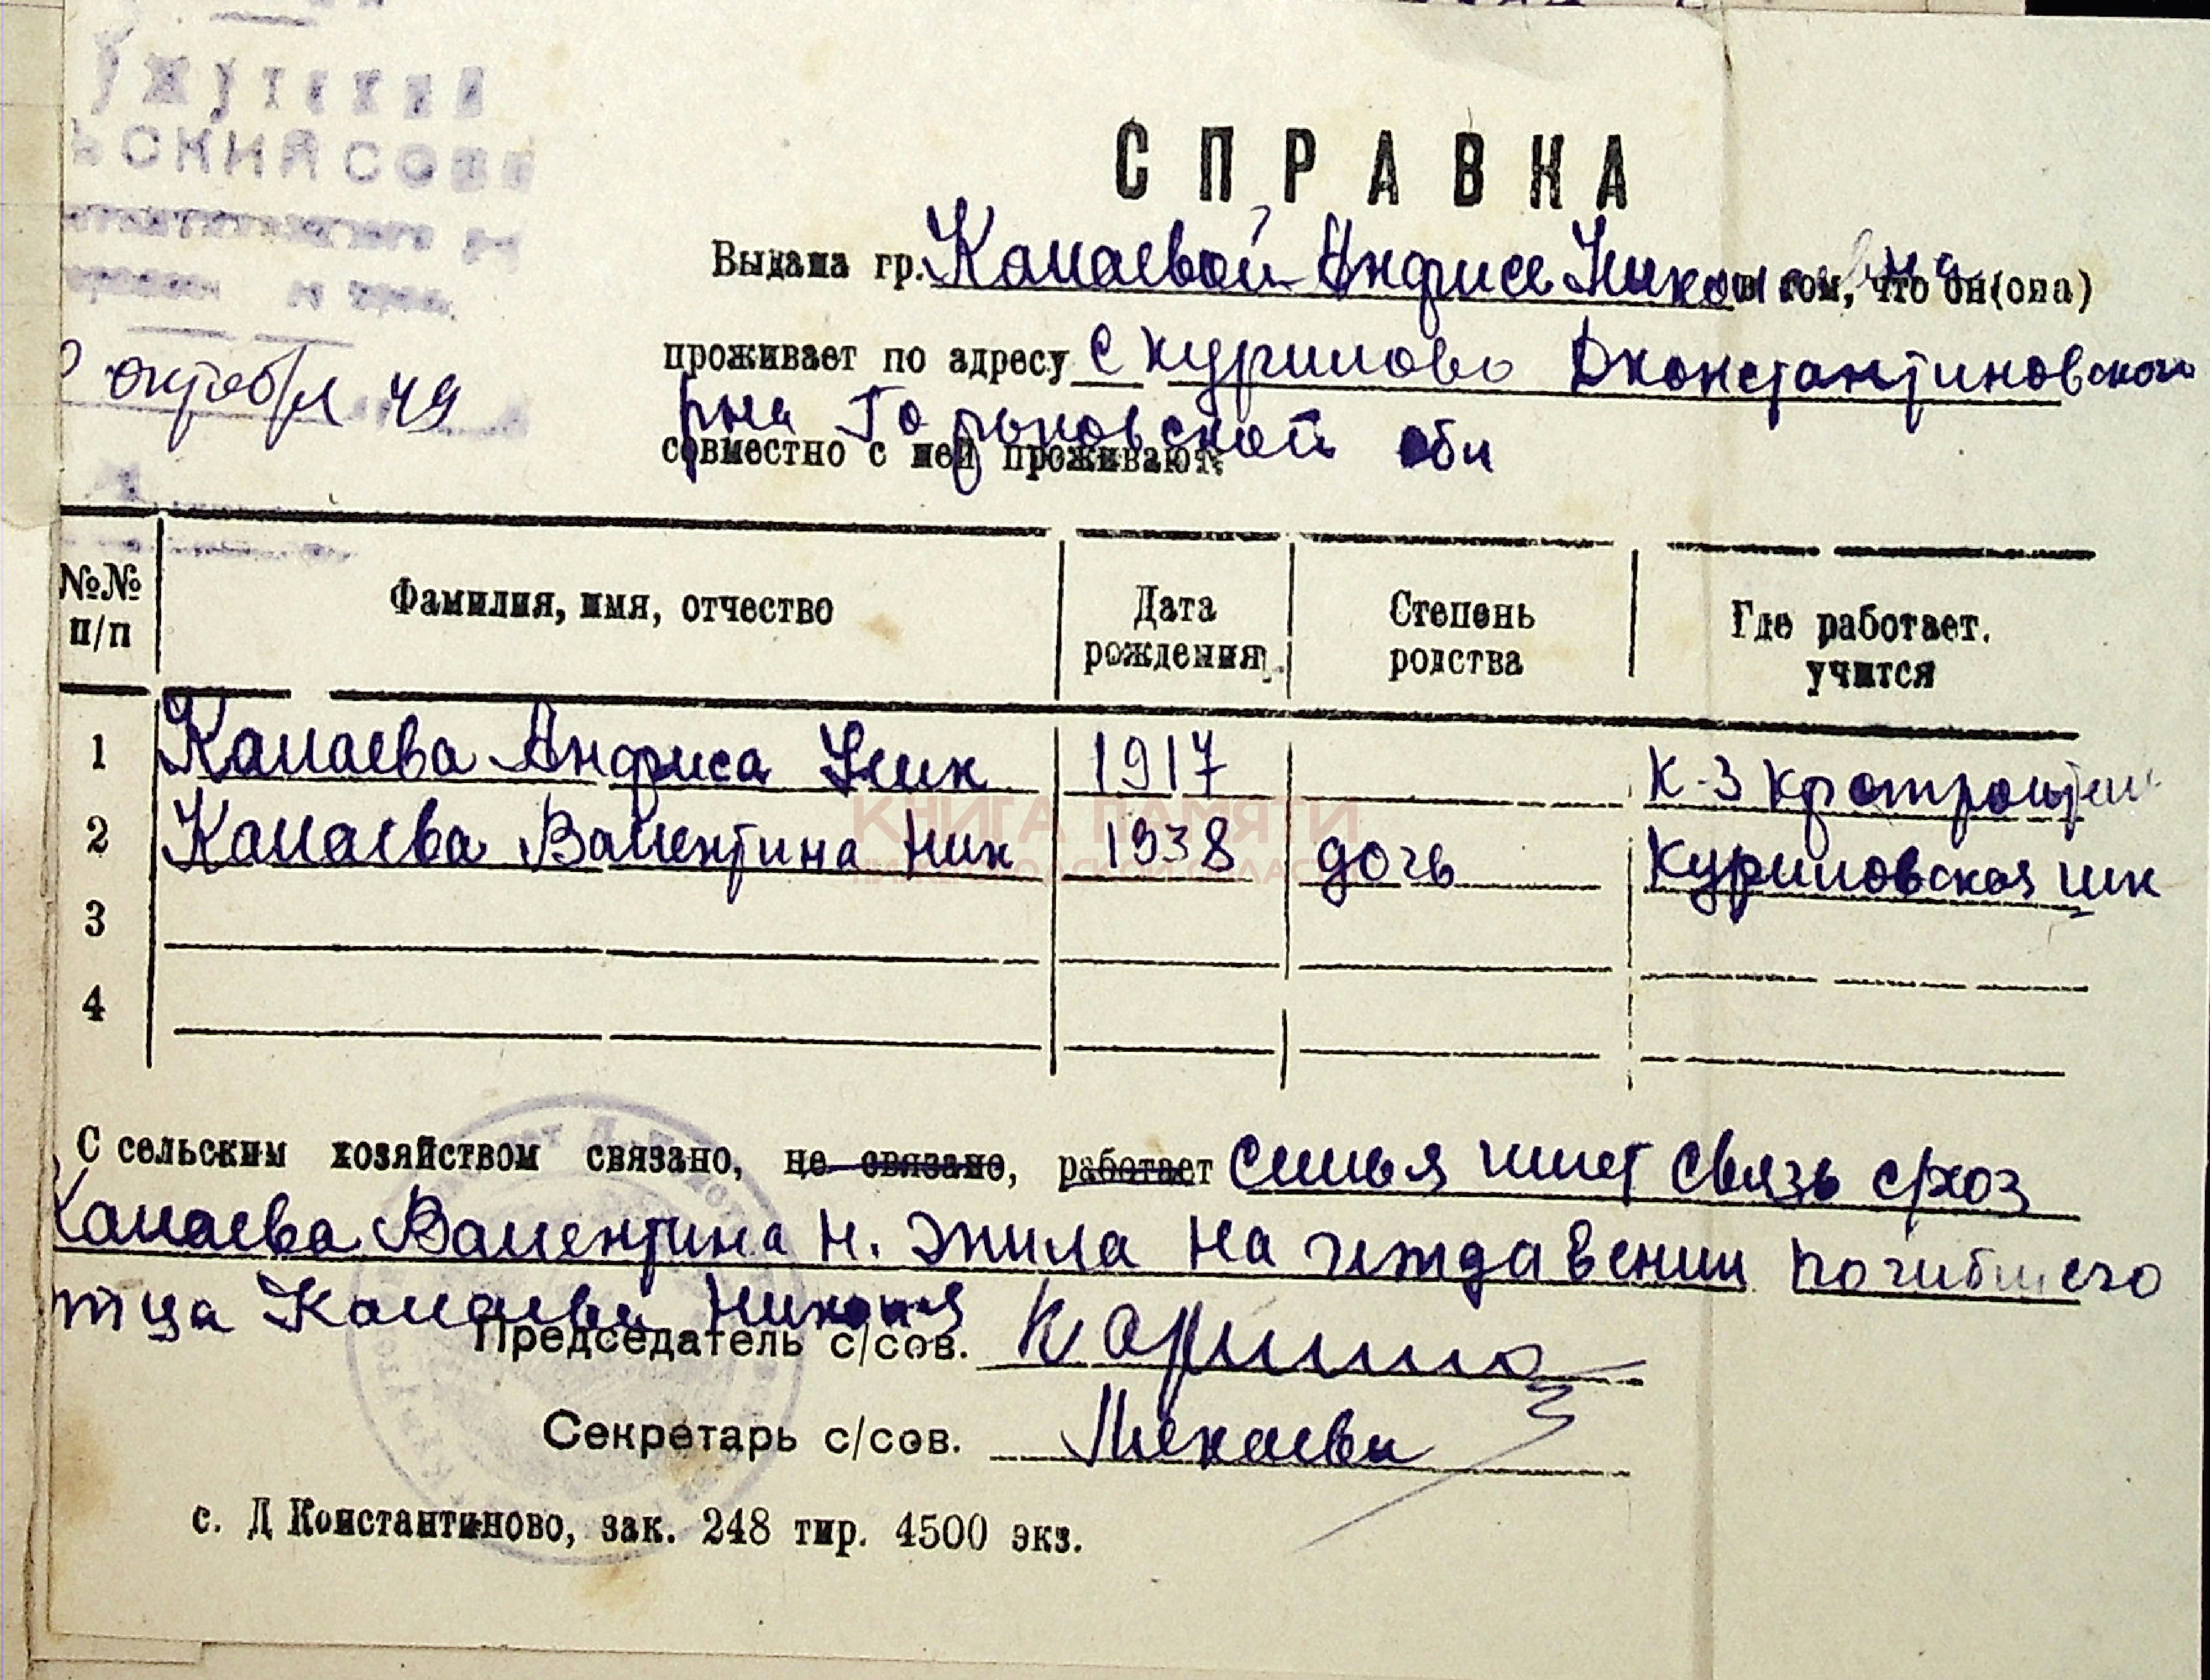 УЖУТСКИЙ
ЬСКИЙ СОВЕ
октября 49
СПРАВКА
Выдана гр. Камаевой Анфисе Никол в том, что он(она)
проживает по адресу с Курилово Дконстантиновского
рна Горьковской обл
совместно с ней проживают:
№№ п/п
Фамилия, имя, отчество
Дата рождения
Степень родства
Где работает. учится
1 Камаева Анфиса Ник 1917 К-з Кронштат
2 Камаева Валентина Ник 1938 дочь Куриловская шк
3
4
КНИГА ПАМЯТИ
НИЖЕГОРОДСКОЙ ОБЛАСТИ
С сельским хозяйством связано, не связано, работает семья имеет связь схоз
Камаева Валентина Н. жила на иждавении погибшего
тца Камаева Николая
Председатель с/сов.
Секретарь с/сов.
с. Д Константиново, зак. 248 тир. 4500 экз.